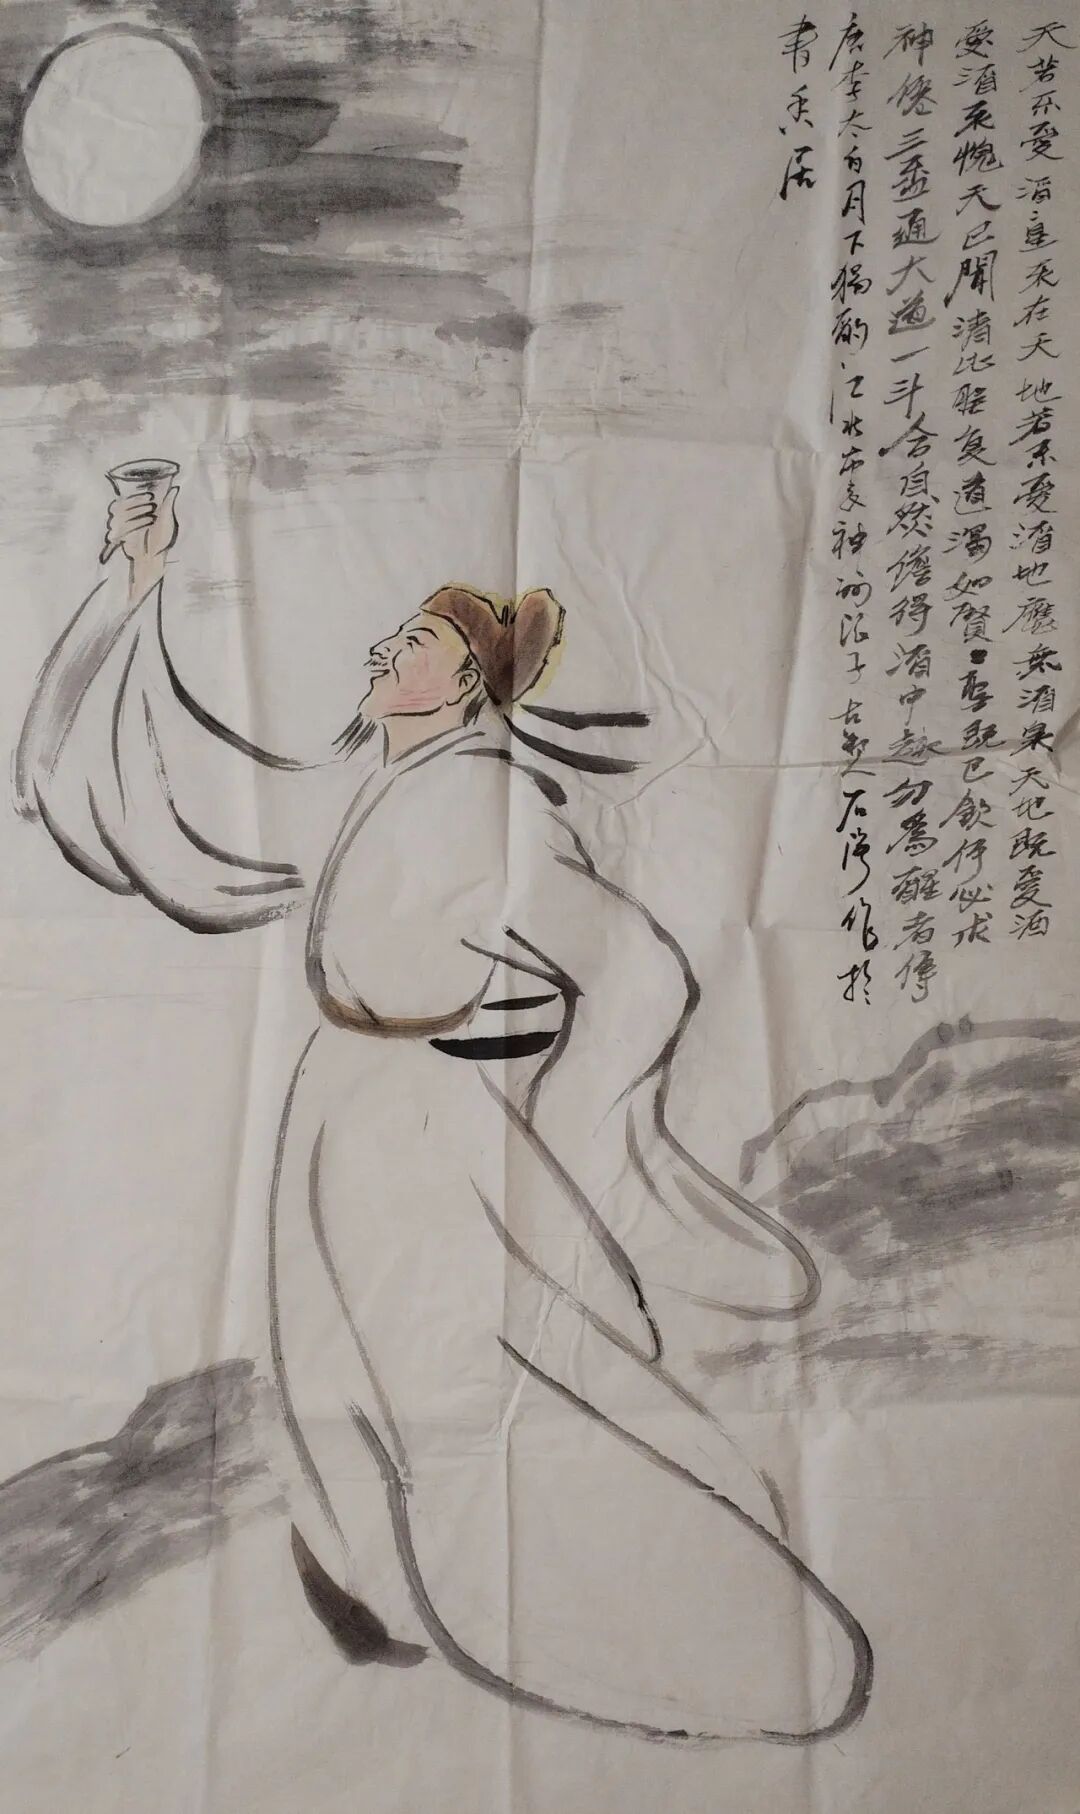 天若不愛酒星不在天地若不愛酒地應無酒泉天地既愛酒
愛酒不愧天已聞清比聖復道濁如賢〻聖既已飲何必求
神僊三盃通大道一斗合自然但得酒中趣勿為醒者傳
唐李太白月下獨酌江北布衣神洲浪子古人石作於
書香居